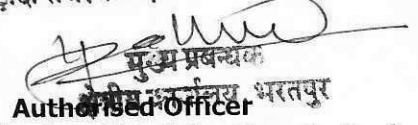 मुख्य प्रबन्धक
क्षेत्रीय कार्यालय भरतपुर
Authorised Officer